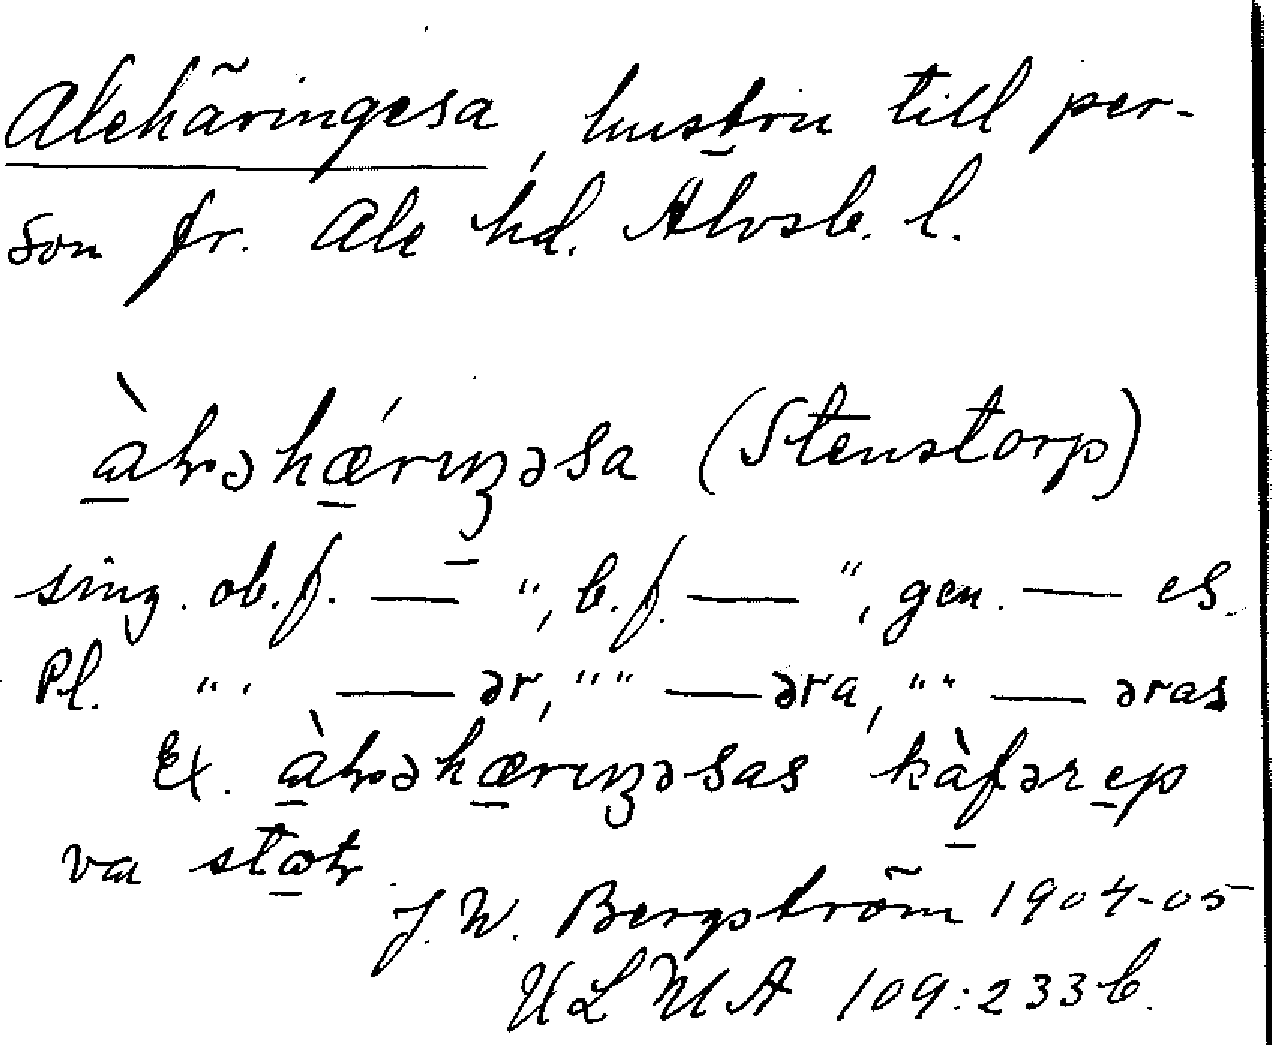 Alehäringesa, hustru till per-
son fr. Ale hd. Älvsb. l.
àləhǽrıŋəsa (Stenstorp)
sing. ob.f. — ", b.f. — ", gen. — es.
Pl. " " — ər, " " — əra, " " — əras
Ex. àləhærıŋəsas kàfərep
va stæł.
J. W. Bergström 1904-05
ULMA 109:233 b.